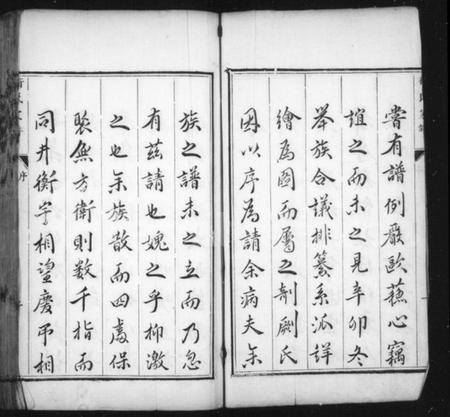 嘗有譜例廢歐蘇心竊
誼之而未之見辛卯冬
舉族合議排纂系派詳
繪為圖而屬之剞劂氏
因以序為請余病夫余
族之譜未之立而乃忽
有茲請也媿之乎抑激
之也余族散而四處保
聚無方衛則数千指而
同井衡宇相望慶弔相
序